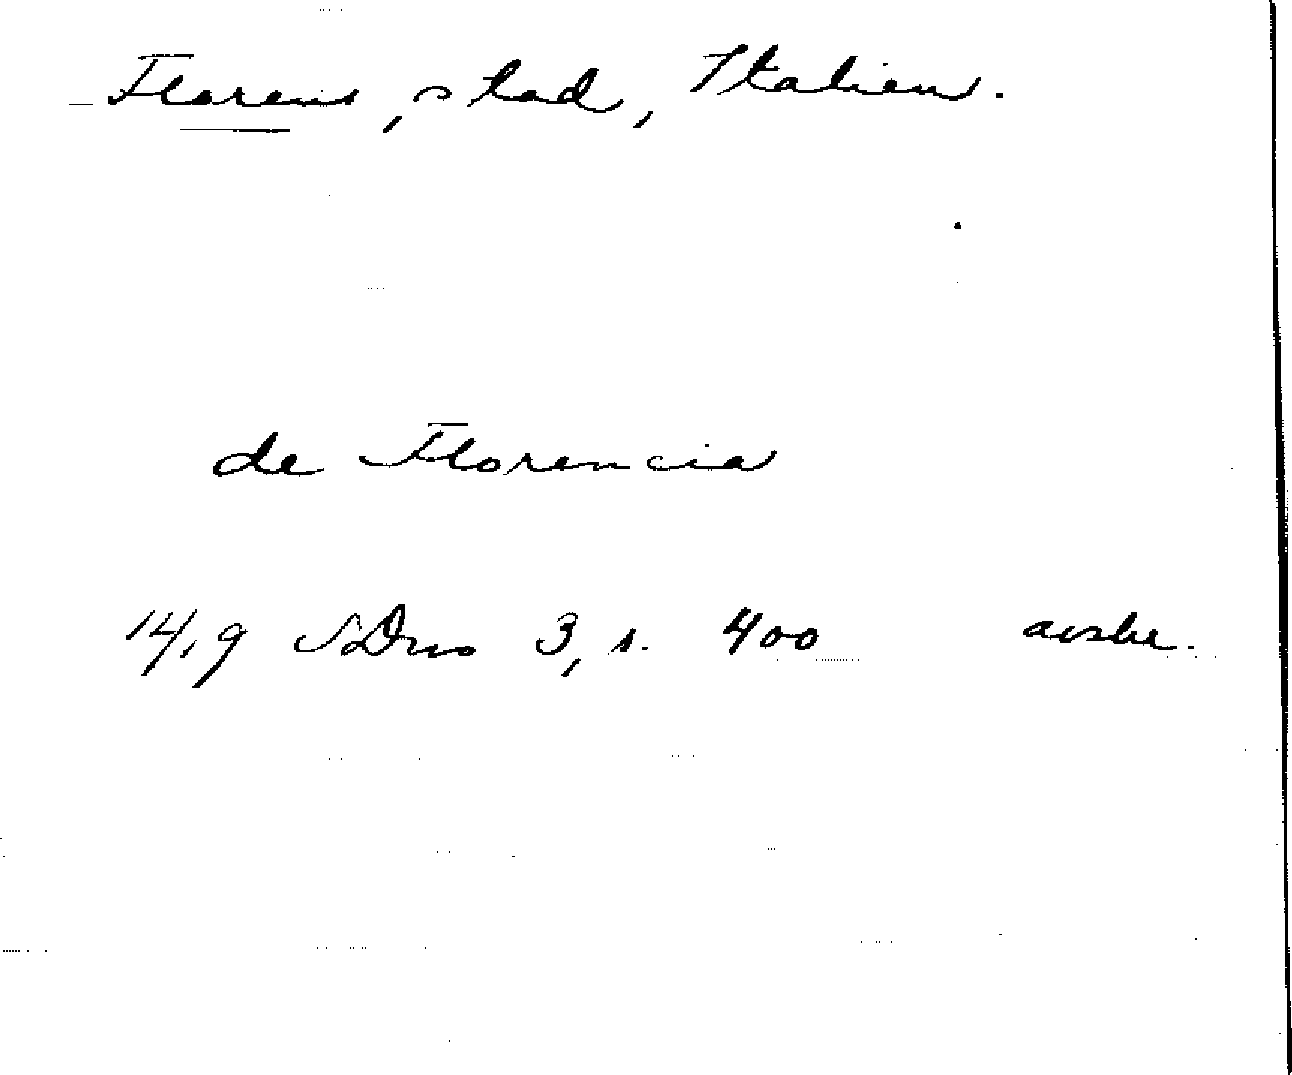 Florens, stad, Italien.
de Florencia
1419 SDns 3, s. 400 avskr.